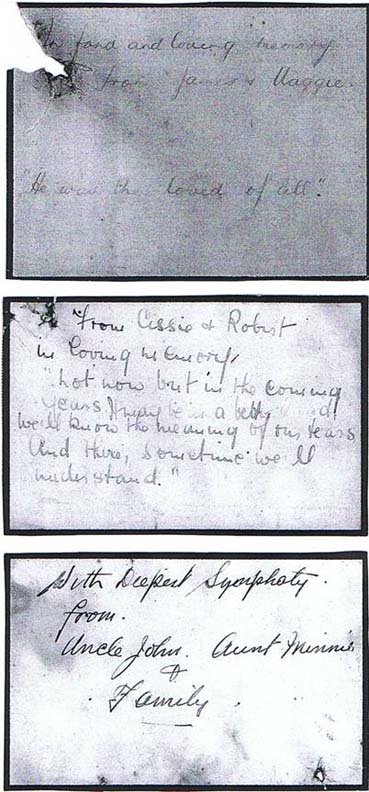 In fond and loving memory
from James & Maggie.
"He was the loved of all."
From Cissie & Robert
in loving memory,
"Not now but in the coming
years, It may be in a better
we'll know the meaning of our tears
And there, sometime we'll
understand."
With Deepest Symphaty.
from.
Uncle John. Aunt Minnie
&
Family.